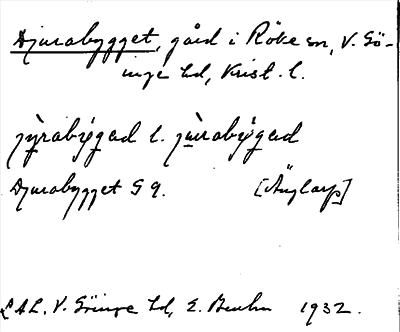 Djurabygget, gård i Röke sn, V. Gö-
inge hd, Krist. l.
jỳrabýgəd l. jùrabýgəd
Djurabygget G 9. [Änglarp]
LAL. V. Göinge hd, E. 1932.